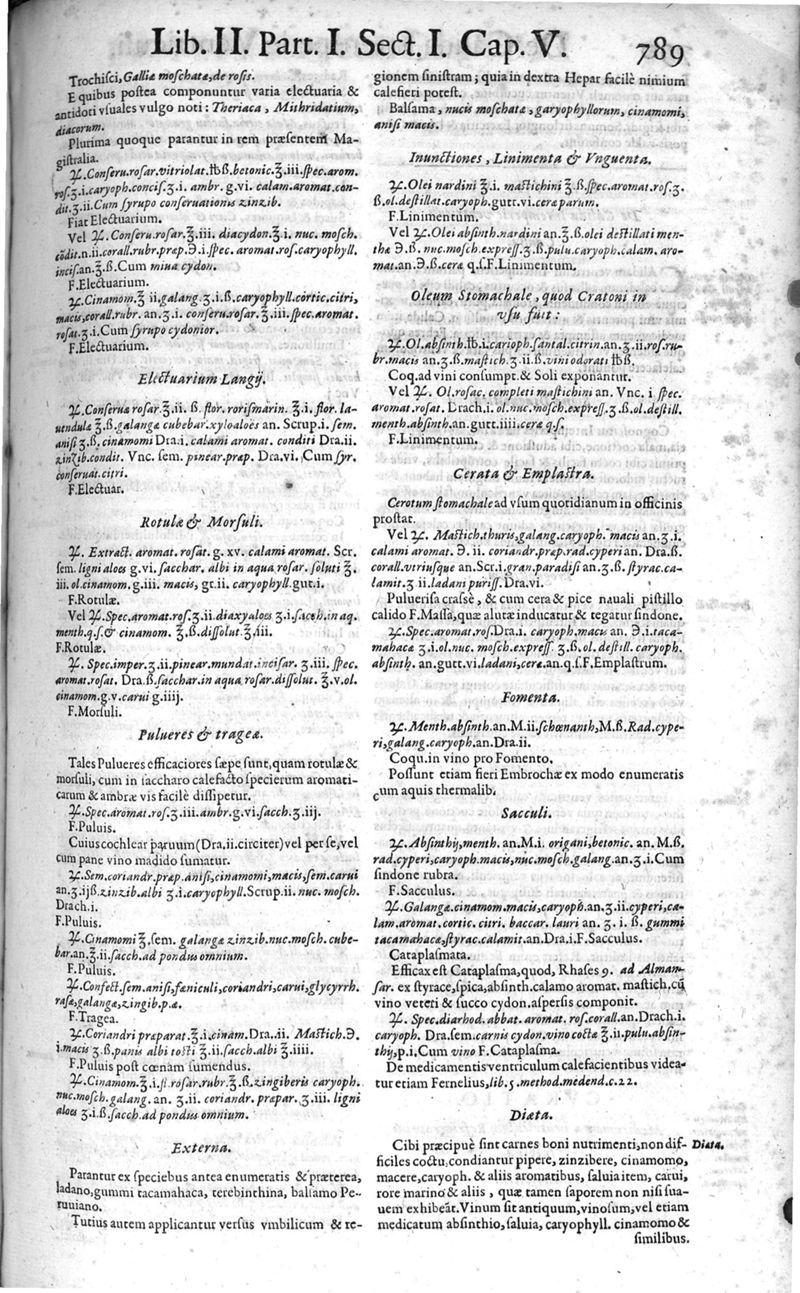 Lib. II. Part. I. Sect. I. Cap. V. 789
Trochiſci, Galliæ moſchatæ, de roſis.
E quibus poſtea componuntur varia electuaria &
antidoti vſuales vulgo noti: Theriaca, Mithridatium,
diacorum.
Plurima quoque parantur in rem præſentem Ma-
giſtralia.
♃. Conſeru. roſar. vitriolat. ℔ß. betonic. ℥.iii. ſpec. arom.
roſ. ʒ.i. caryoph. conciſ. ʒ.i. ambr. g.vi. calam. aromat. con-
dit. ʒ.ii. Cum ſyrupo conſeruationis zinzib.
Fiat Electuarium.
Vel ♃. Conſeru. roſar. ℥.iii. diacydon. ℥.i. nuc. moſch.
cõdit. n.ii. corall. rubr. præp. ℈.i. ſpec. aromat. roſ. caryophyll.
inciſ. an. ℥.ß. Cum miua cydon.
F. Electuarium.
♃. Cinamom. ℥ ii, galang. ʒ.i.ß. caryophyll. cortic. citri,
macis, corall. rubr. an. ʒ.i. conſeru. roſar. ℥.iii. ſpec. aromat.
roſat. ʒ.i. Cum ſyrupo cydonior.
F. Electuarium.
Electuarium Langij.
♃. Conſeruæ roſar. ℥.ii. ß. flor. roriſmarin. ℥.i. flor. la-
uendulæ ℥.ß. galangæ cubebar. xyloaloës an. Scrup. i. ſem.
aniſi ʒ.ß. cinamomi Dra. i. calami aromat. conditi Dra. ii.
zinzib. condit. Vnc. ſem. pinear. præp. Dra. vi. Cum ſyr.
conſeruat. citri.
F. Electuar.
Rotulæ & Morſuli.
♃. Extract. aromat. roſat. g. xv. calami aromat. Scr.
ſem. ligni aloës g.vi. ſacchar. albi in aqua roſar. ſoluti ℥.
iii. ol. cinamom. g.iii. macis, gt. ii. caryophyll. gut. i.
F. Rotulæ.
Vel ♃. Spec. aromat. roſ. ʒ.ii. diaxyaloes ʒ.i. ſacch. in aq.
menth. q.ſ. & cinamom. ℥.ß. diſſolut. ℥.iii.
F. Rotulæ.
♃. Spec. imper. ʒ.ii. pinear. mundat. inciſar. ʒ.iii. ſpec.
aromat. roſat. Dra. ß. ſacchar. in aqua roſar. diſſolut. ℥.v. ol.
cinamom. g.v. carui g.iiij.
F. Morſuli.
Pulueres & trageæ.
Tales Pulueres efficaciores ſæpe ſunt, quam rotulæ &
morſuli, cum in ſaccharo calefacto ſpecierum aromati-
carum & ambræ vis facilè diſſipetur.
♃. Spec. aromat. roſ. ʒ.iii. ambr. g.vi. ſacch. ʒ.iij.
F. Puluis.
Cuius cochlear paruum (Dra. ii. circiter) vel per ſe, vel
cum pane vino madido ſumatur.
♃. Sem. coriandr. præp. aniſi, cinamomi, macis, ſem. carui
an. ʒ.ijß. zinzib. albi ʒ.i. caryophyll. Scrup. ii. nuc. moſch.
Drach. i.
F. Puluis.
♃. Cinamomi ℥. ſem. galangæ zinzib. nuc. moſch. cube-
bar. an. ℥.ii. ſacch. ad pondus omnium.
F. Puluis.
♃. Confect. ſem. aniſi, fœniculi, coriandri, carui, glycyrrh.
raſæ, galangæ, zingib. p.æ.
F. Tragea.
♃. Coriandri præparat. ℥.i. cinam. Dra. ii. Maſtich. ℈.
i. macis ʒ.ß. panis albi toſti ℥.ii. ſacch. albi ℥.iiii.
F. Puluis poſt cœnam ſumendus.
♃. Cinamom. ℥.i. fl. roſar. rubr. ℥.ß. zingiberis caryoph.
nuc. moſch. galang. an. ʒ.ii. coriandr. præpar. ℥.iii. ligni
aloes ʒ.i.ß. ſacch. ad pondus omnium.
Externa.
Parantur ex ſpeciebus antea enumeratis & præterea,
ladano, gummi tacamahaca, terebinthina, balſamo Pe-
ruuiano.
Tutius autem applicantur verſus vmbilicum & re-
gionem ſiniſtram; quia in dextra Hepar facilè nimium
calefieri poteſt.
Balſama, nucis moſchatæ, garyophyllorum, cinamomi,
aniſi macis.
Inunctiones, Linimenta & Vnguenta.
♃. Olei nardini ℥.i. maſtichini ℥.ß. ſpec. aromat. roſ. ʒ.
ß. ol. deſtillat. caryoph. gutt. vi. ceræ parum.
F. Linimentum.
Vel ♃. Olei abſinth. nardini an. ℥.ß. olei deſtillati men-
thæ ℈.ß. nuc. moſch. expreſſ. ʒ.ß. pulu. caryoph. calam. aro-
mat. an. ℈.ß. ceræ q.ſ. F. Linimentum.
Oleum Stomachale, quod Cratoni in
vſu fuit:
♃. Ol. abſinth. ℔.i. carioph. ſantal. citrin. an. ʒ.ii. roſ. ru-
br. macis an. ʒ.ß. maſtich. ʒ.ii.ß. vini odorati ℔ß.
Coq. ad vini conſumpt. & Soli exponantur.
Vel ♃. Ol. roſac. completi maſtichini an. Vnc. i ſpec.
aromat. roſat. Drach. i. ol. nuc. moſch. expreſſ. ʒ.ß. ol. deſtill.
menth. abſinth. an. gutt. iiii. ceræ q.ſ.
F. Linimentum.
Cerata & Emplaſtra.
Cerotum ſtomachale ad vſum quotidianum in officinis
proſtat.
Vel ♃. Maſtich. thuris, galang. caryoph. macis an. ʒ.i.
calami aromat. ℈. ii. coriandr. præp. rad. cyperi an. Dra. ß.
corall. vtriuſque an. Scr. i. gran. paradiſi an. ʒ.ß. ſtyrac. ca-
lamit. ʒ ii. ladani puriſſ. Dra. vi.
Pulueriſa craſsè, & cum cera & pice nauali piſtillo
calido F. Maſſa, quæ alutæ inducatur & tegatur ſindone.
♃. Spec. aromat. roſ. Dra. i. caryoph. macis an. ℈.i. taca-
mahacæ ʒ.i. ol. nuc. moſch. expreſſ. ʒ.ß. ol. deſtill. caryoph.
abſinth. an. gutt. vi. ladani, ceræ, an. q.ſ. F. Emplaſtrum.
Fomenta.
♃. Menth. abſinth. an. M. ii. ſchœnanth, M. ß. Rad. cype-
ri, galang. caryoph. an. Dra. ii.
Coqu. in vino pro Fomento.
Poſſunt etiam fieri Embrochæ ex modo enumeratis
cum aquis thermalib.
Sacculi.
♃. Abſinthij, menth. an. M. i. origani, betonic. an. M. ß.
rad. cyperi, caryoph. macis, nuc. moſch. galang. an. ʒ.i. Cum
ſindone rubra.
F. Sacculus.
♃. Galangæ. cinamom. macis, caryoph. an. ʒ.ii. cyperi, ca-
lam. aromat. cortic. citri. baccar. lauri an. ʒ. i. ß. gummi
tacamahacæ, ſtyrac. calamit. an. Dra. i. F. Sacculus.
Cataplaſmata.
Efficax eſt Cataplaſma, quod, Rhaſes 9. ad Alman-
ſar. ex ſtyrace, ſpica, abſinth. calamo aromat. maſtich. cũ
vino veteri & ſucco cydon. aſperſis componit.
♃. Spec. diarhod. abbat. aromat. roſ. corall. an. Drach. i.
caryoph. Dra. ſem. carnis cydon. vino coctæ ℥.ii. pulu. abſin-
thij, p.i. Cum vino F. Cataplaſma.
De medicamentis ventriculum calefacientibus videa-
tur etiam Fernelius, lib. 5. method. medend. c. 22.
Diæta.
Cibi præcipuè ſint carnes boni nutrimenti, non dif- Diæta.
ficiles coctu, condiantur pipere, zinzibere, cinamomo,
macere, caryoph. & aliis aromatibus, ſaluia item, carui,
rore marino & aliis, quæ tamen ſaporem non niſi ſua-
uem exhibeãt. Vinum ſit antiquum, vinoſum, vel etiam
medicatum abſinthio, ſaluia, caryophyll. cinamomo &
ſimilibus.